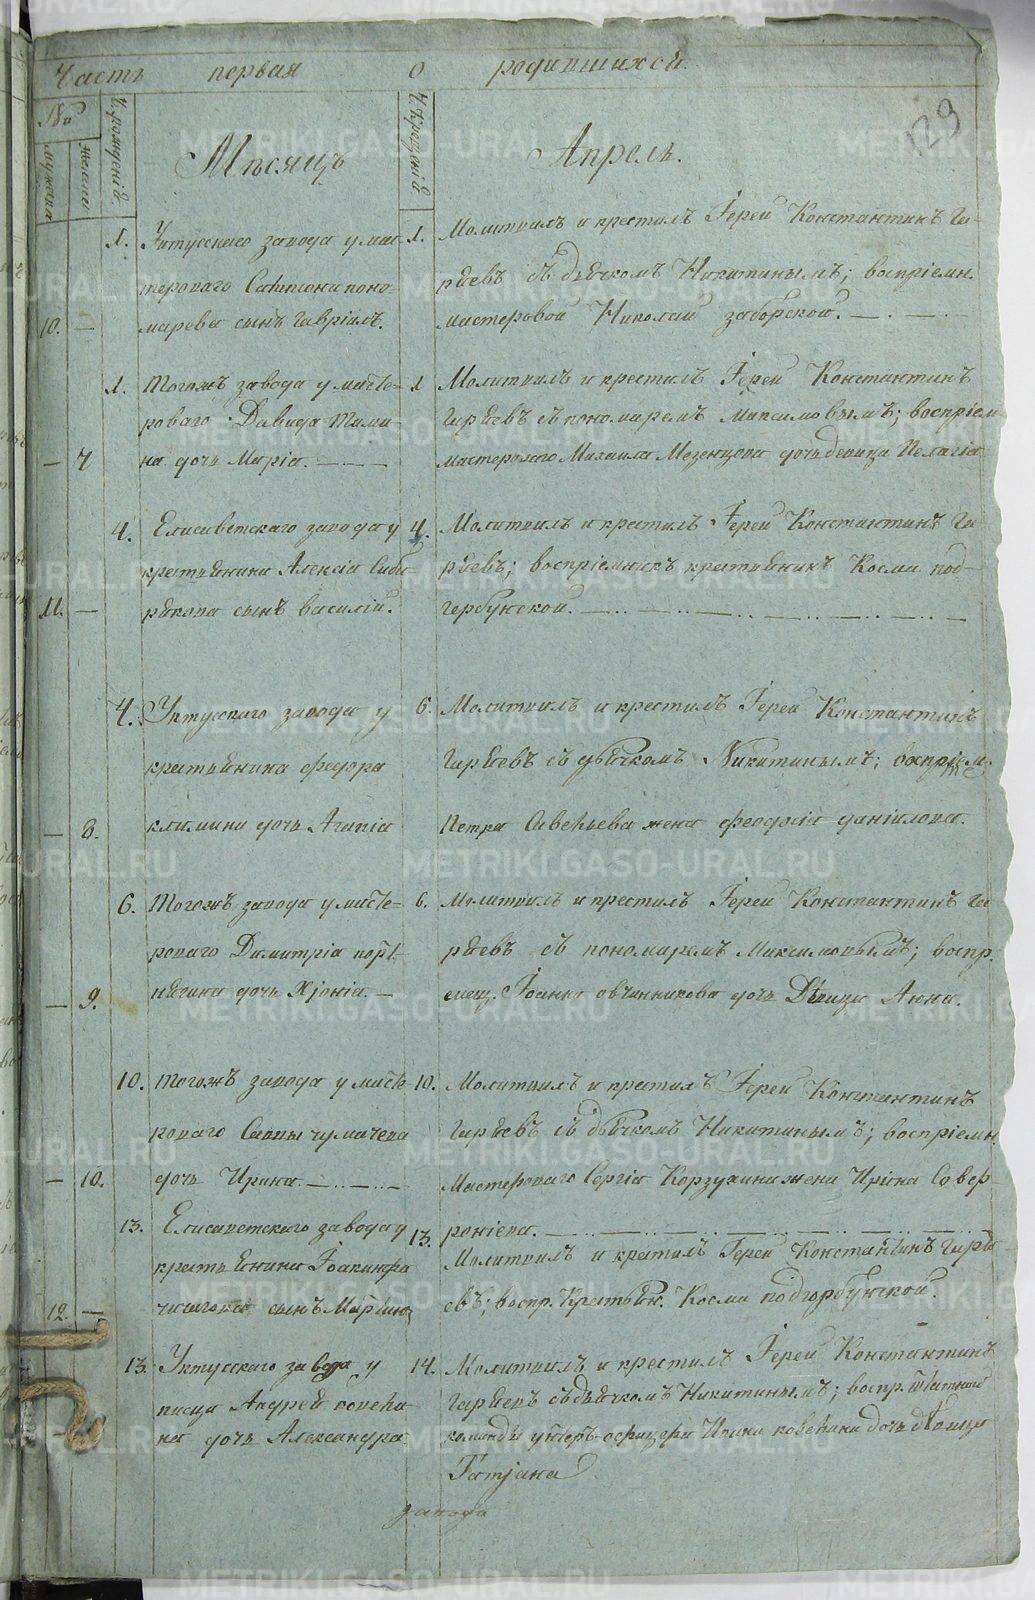 Часть первая о родившихся
129
№
мужска
женска
Ч. рождения
Месяцъ
Ч. крещения
Апрель.
10. —
1. Уктусскаго завода у мас-
тероваго Симеона поно-
марева сынъ Гавріилъ.
1. Молитвилъ и крестилъ Іерей Константинъ Ги-
ряевъ съ дьячкомъ Никитинымъ; воспріемн.
мастеровой Николай заборской. — . — . —
— 7
1. Тогожъ завода у масте-
роваго Давида Тими-
на дочь Марія. — — —
1 Молитвилъ и крестилъ Іерей Константинъ
Гиряевъ съ пономаремъ Максимовымъ; воспріем
мастероваго Михаила Мезенцова дочь девица Пелагія
11. —
4. Елисаветскаго завода у
крестьянина Алексія Сиби-
рякова сынъ василій.
4. Молитвилъ и крестилъ Іерей Константинъ Ги-
ряевъ; воспріемникъ крестьянинъ Косма под-
гербунской. —
— 8.
4. Уктусскаго завода у
крестьянина федора
климина дочь Агапіа
6. Молитвилъ и крестилъ Іерей Константинъ
Гиряевъ съ дьячкомъ Никитинымъ; воспріем.
Петра Савельева жена феодосія даніилова.
— 9.
6. Тогожъ завода у масте-
роваго Димитрія порт-
нягина дочь Хіонія. —
6. Молитвилъ и крестилъ Іерей Константинъ Ги-
ряевъ съ пономаремъ Максимовымъ; воспр.
Іоанна овчинникова дочь Девица Анна.
— 10.
10. тогожъ завода у масте
роваго Саввы чумачева
дочь Ирина. — .. — .. —
10. Молитвилъ и крестилъ Іерей Константинъ
Гиряевъ съ дьячкомъ Никитинымъ; воспріемн.
Мастероваго Сергія Корзухина жена Иріна Совер-
роніева. —
12. —
13. Елисаветскаго завода у
крестьянина Іоакинфа
чигогова сынъ Мартинъ
13. Молитвилъ и крестилъ Іерей Константинъ Гиря
евъ; воспр. Крестьян. Косма подгорбунской.
13. Уктусскаго завода у
писца Андрей ковеһи
на дочь Александра
14. Молитвилъ и крестилъ Іерей Константинъ
Гиряевъ съ дьячкомъ Никитинымъ; воспр. штатной
команды унтеръ-офицера дочь девица
Татіана
завода